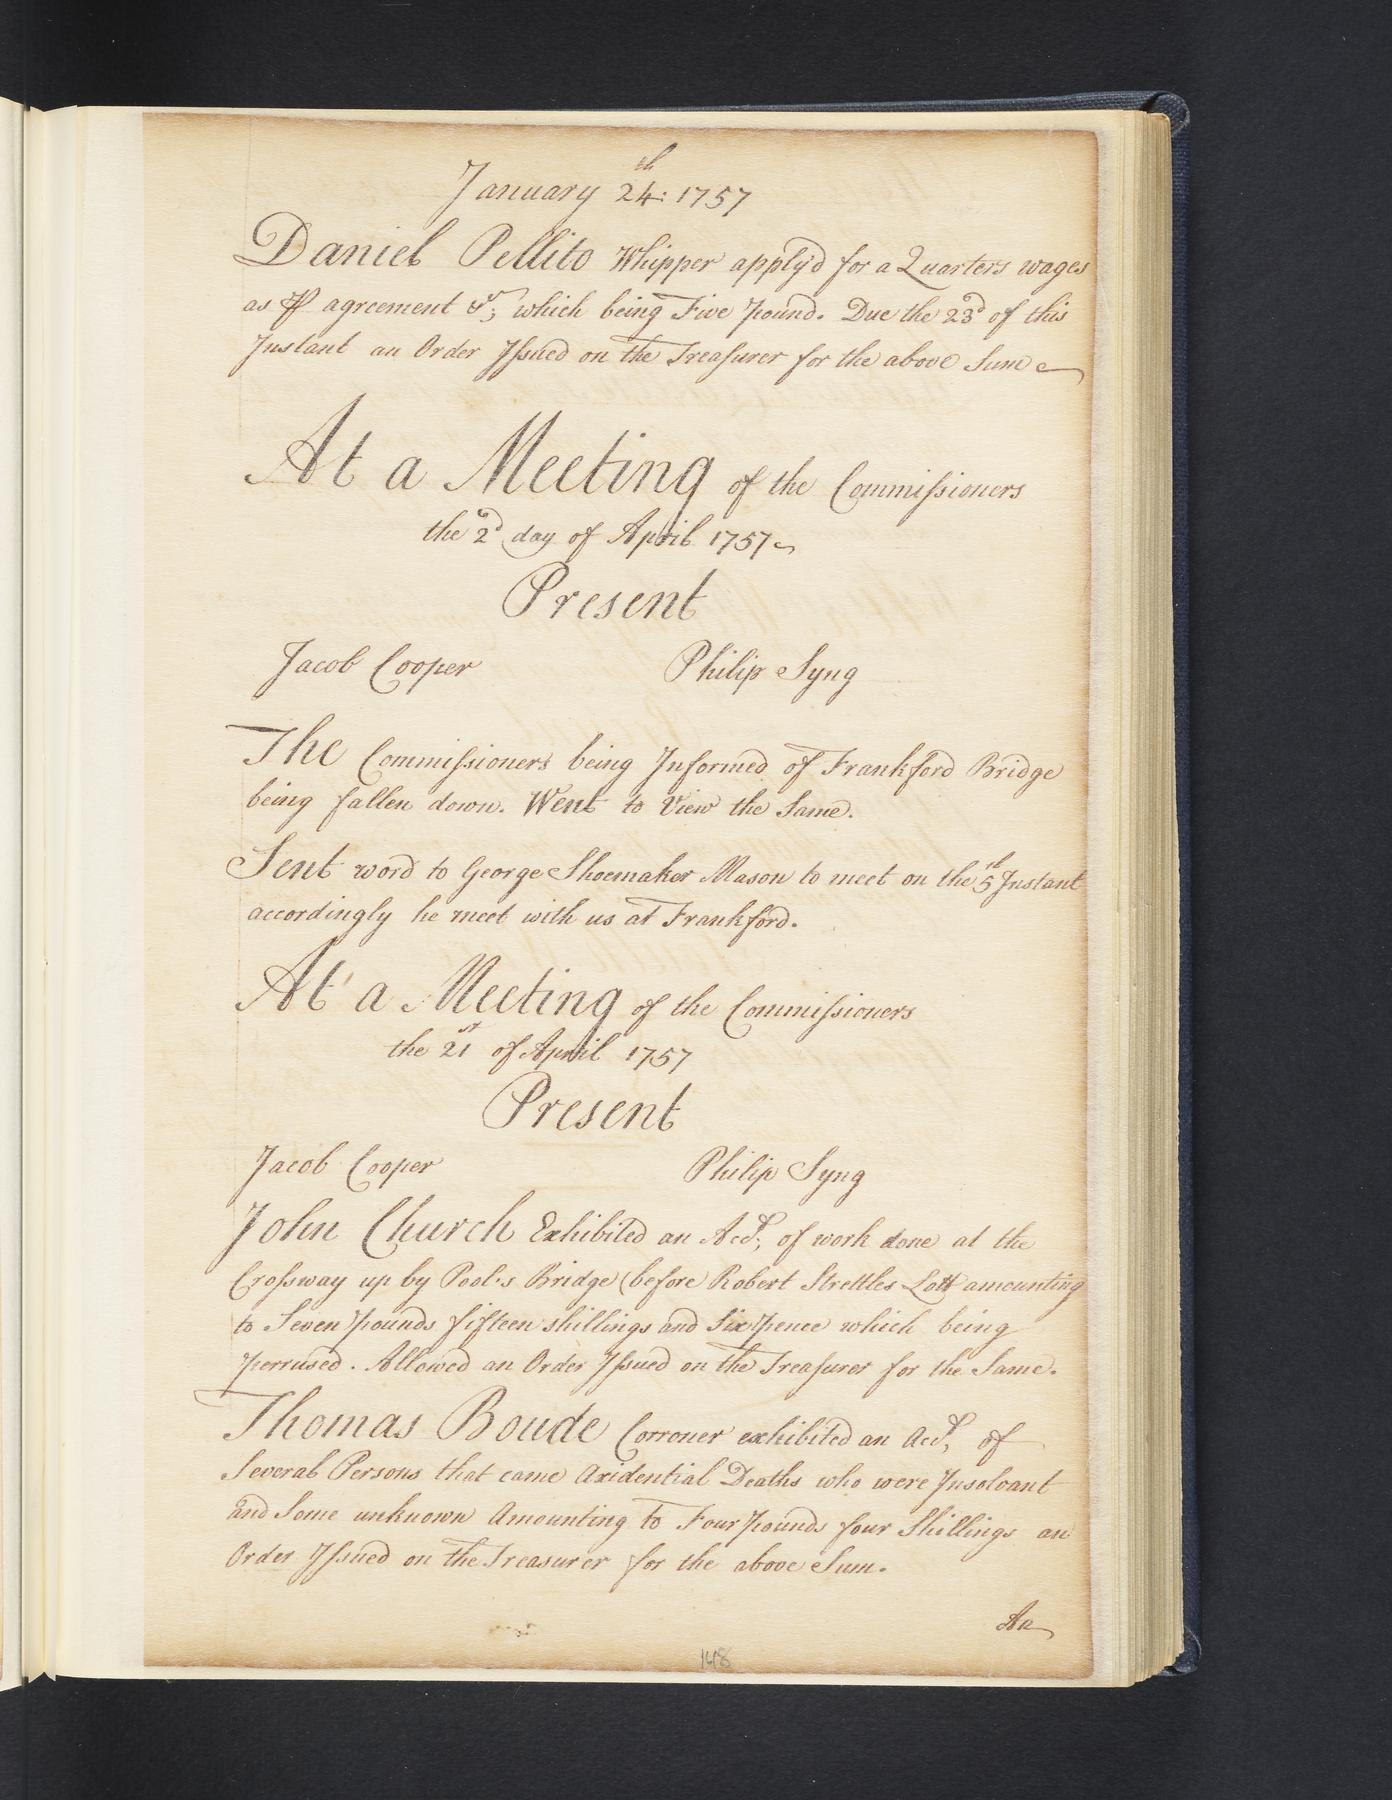 January 24th: 1757
Daniel Pellito Whipper apply'd for a Quarters wages
as ⅌ agreement &c; which being Five pound. Due the 23d of this
Instant an Order Issued on the Treasurer for the above Sum
At a Meeting of the Commissioners
the 2d day of April 1757
Present
Jacob Cooper Philip Syng
The Commissioners being Informed of Frankford Bridge
being fallen down. Went to View the Same.
Sent word to George Shoemaker Mason to meet on the 5th Instant
accordingly he meet with us at Frankford.
At a Meeting of the Commissioners
the 21st of April 1757
Present
Jacob Cooper Philip Syng
John Church Exhibited an Acct; of work done at the
Crossway up by Pool's Bridge (before Robert Strettles Lott amounting
to Seven pounds fifteen shillings and Six pence which being
perrused. Allowed an Order Issued on the Treasurer for the Same.
Thomas Boude Corroner exhibited an Acct, of
Several Persons that came Axidential Deaths who were Insolvant
and Some unknown Amounting to Four pounds four Shillings an
Order Issued on the Treasurer for the above Sum.
148